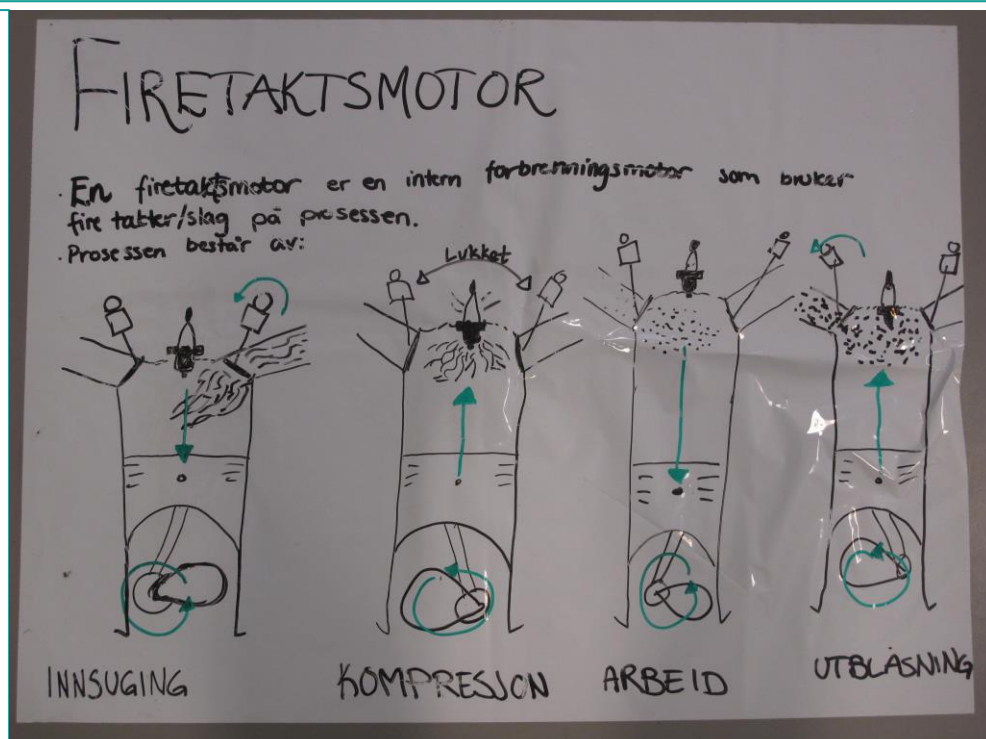 FIRETAKTSMOTOR
· En firetaktsmotor er en intern forbrenningsmotor som bruker
fire takter/slag på prosessen.
· Prosessen består av:
Lukket
INNSUGING
KOMPRESJON
ARBEID
UTBLÅSNING